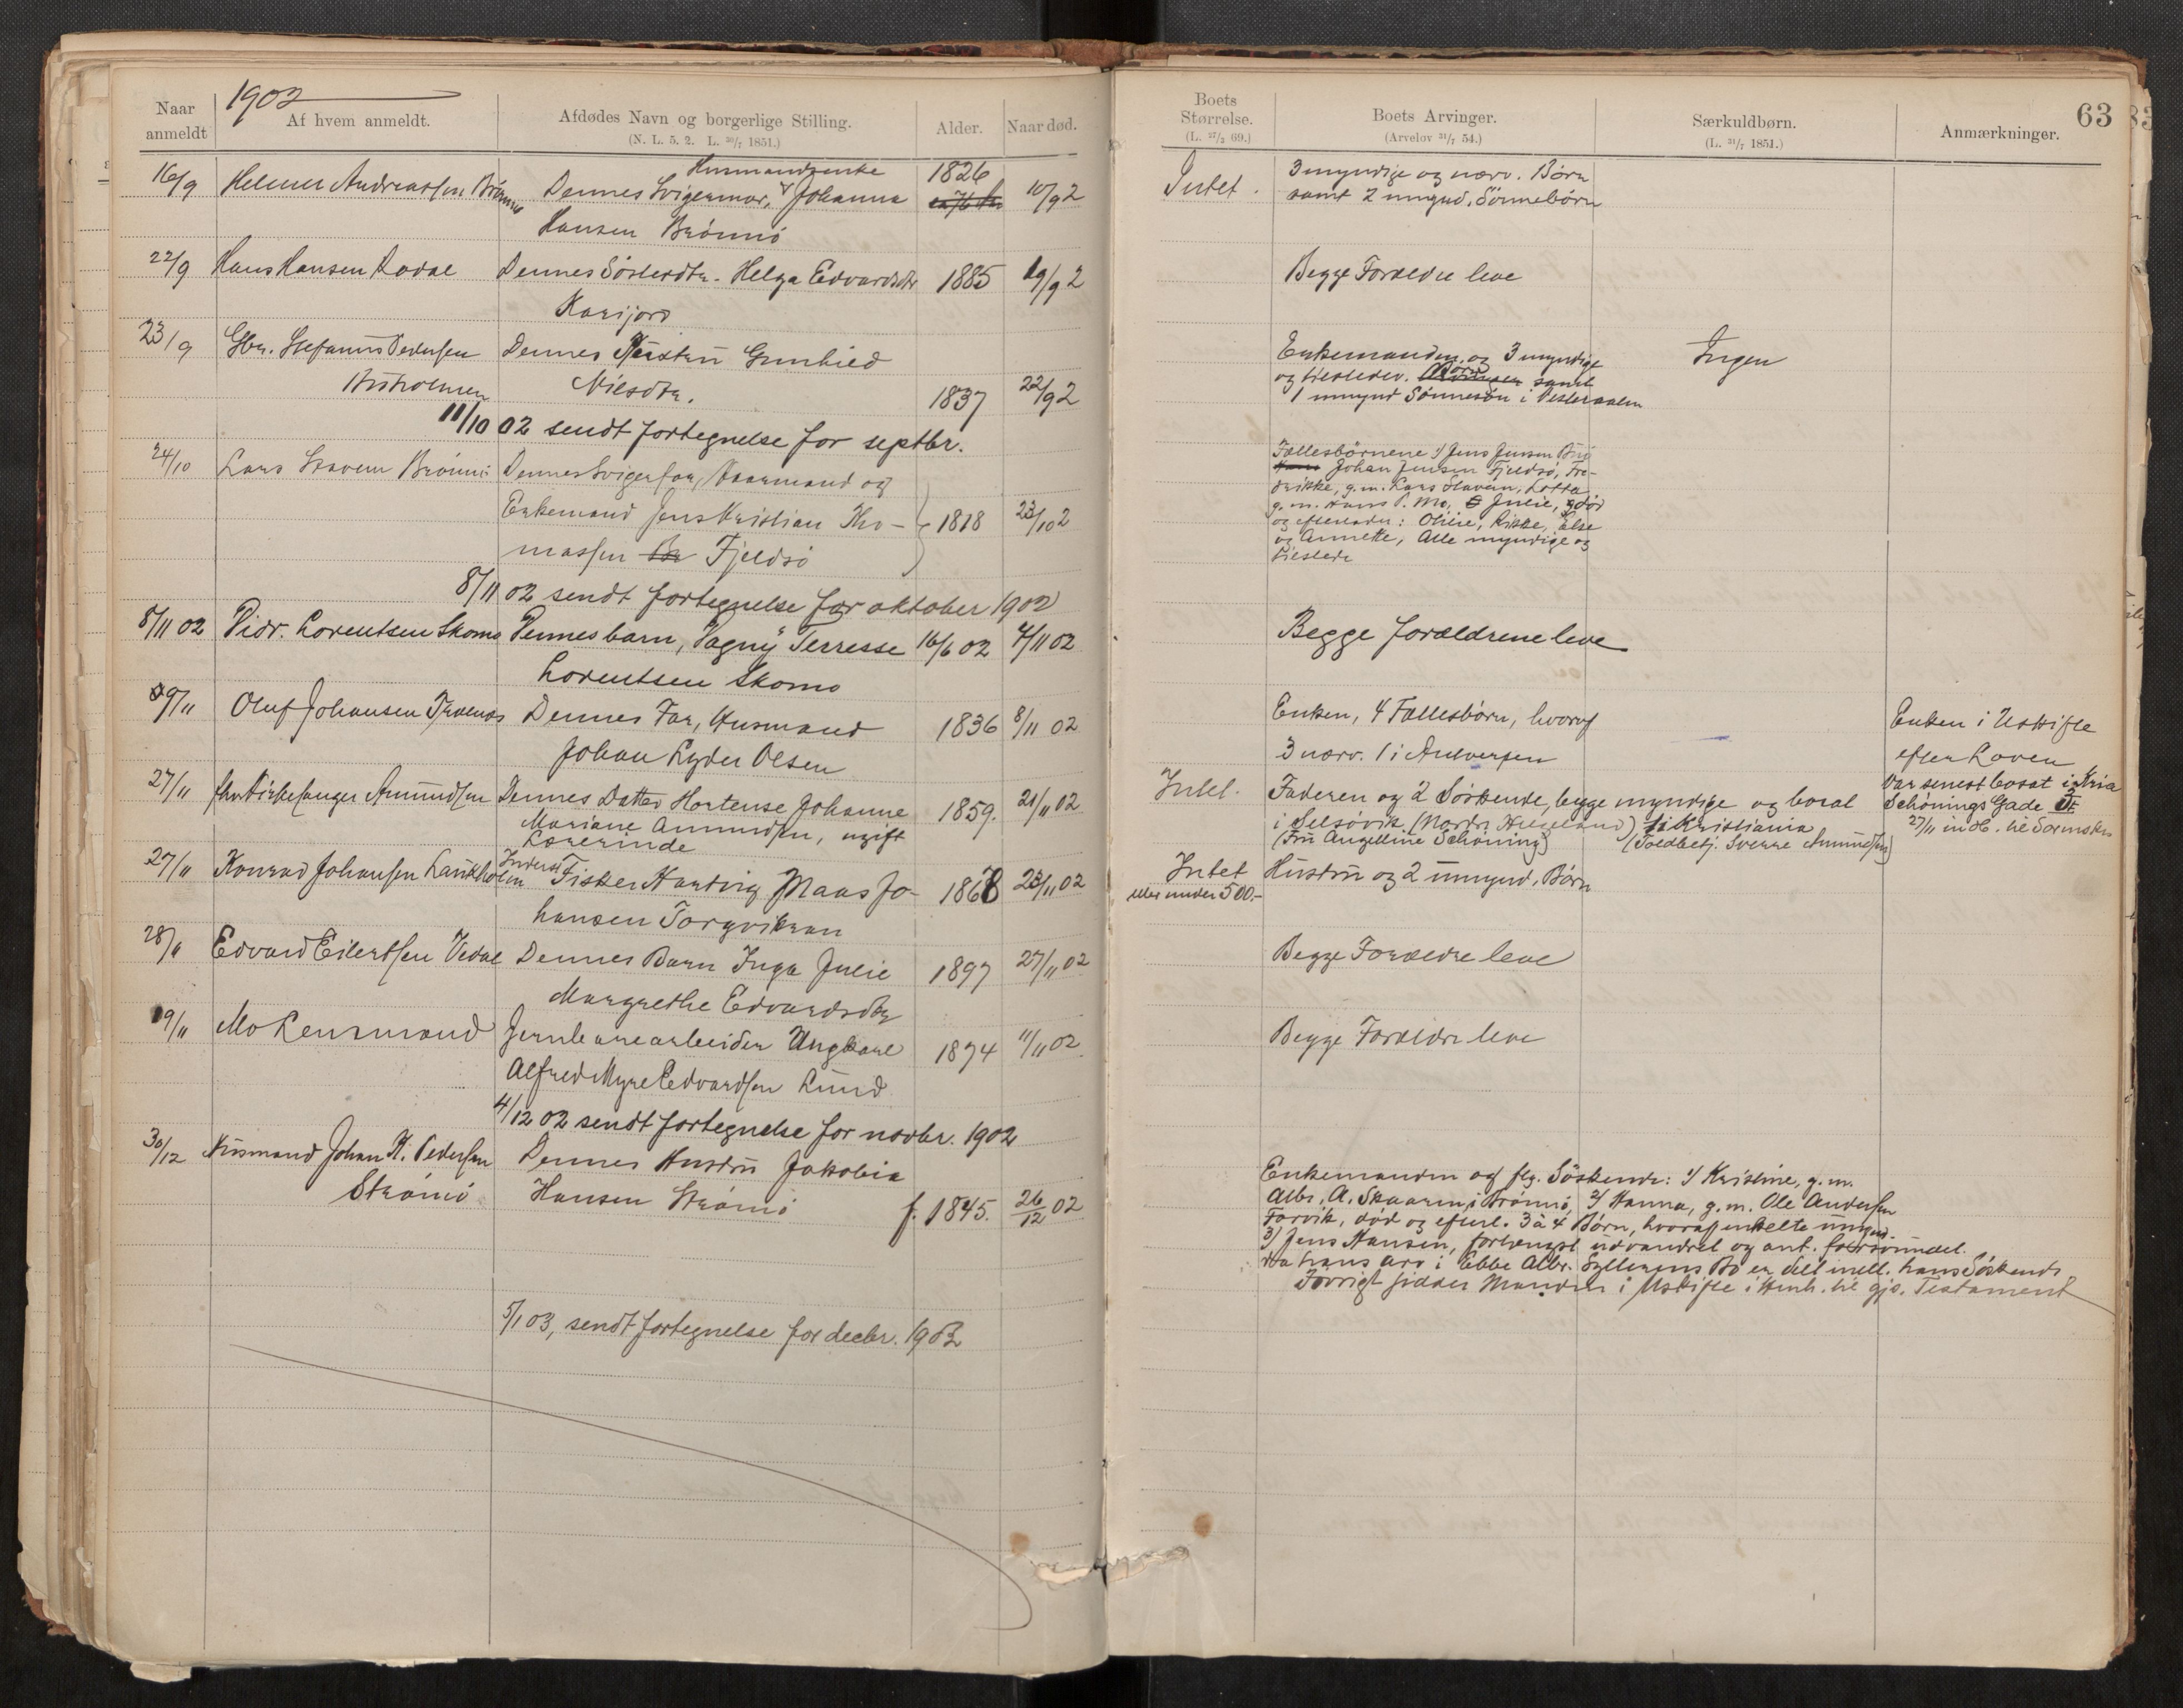 1902
Naar anmeldt
Af hvem anmeldt.
Afdødes Navn og borgerlige Stilling.
(N. L. 5. 2. L. 30/7 1851.)
Alder.
Naar død.
16/9 Helmer Andreassen Brønnø
Husmandsenke
Dennes Svigermor, Johanna
Hansen Brønnø
1826
10/9 2
22/9 Hans Hansen Dodal Dennes Søsterdtr. Helga Edvardsdtr 1885 19/9 2
Karijord
23/9 Gbr. Stefanus Pedersen Dennes Hustru Gunhild
Nilsdtr. 1837 22/9 2
11/10 02 sendt fortegnelse for septbr.
24/10 Lars Skavem Brønnø Dennes Svigerfar, Kaarmand og
Enkemand Jens Kristian Tho- 1818 23/10 2
massen Fjeldsø
8/11 02 sendt fortegnelse for oktober 1902
8/11 02 Pidr. Lorentsen Skomo Dennes barn, Dagny Terresse 16/6 02 4/11 02
Lorentsen Skomo
9/11 Oluf Johansen Dennes Far, Husmand 1836 8/11 02
Johan Lyder Olsen
27/11 fhv Kirkesanger Amundsen Dennes Datter Hortense Johanne 1859. 21/11 02
Mariane Amundsen, ugift
Lærerinde
27/11 Konrad Johansen Lankholm Inderst Fisker Hartvig Maas Jo- 1868 23/11 02
hansen Torgvikran
28/11 Edvard Eilertsen Vedal Dennes Barn Inga Julie 1897 27/11 02
Margrethe Edvardsdtr
19/11 Mo Lensmand Jernbanearbeider Ungkarl 1874 11/11 02
Alfred Myre Edvardsen Lund
4/12 02 sendt fortegnelse for novbr. 1902
30/12 Husmand Johan H. Pedersen Dennes Hustru Jakobia
Strømø Hansen Strømø f. 1845. 26/12 02
5/1 03, sendt fortegnelse for decbr. 1902
63
Boets Størrelse.
(L. 27/3 69.)
Boets Arvinger.
(Arvelov 31/7 54.)
Særkuldbørn.
(L. 31/7 1851.)
Anmærkninger.
Intet. 3 myndige og nærv. Børn
samt 2 umynd. Sønnebørn
Begge Forældre leve
Enkemanden og 3 myndige Ingen
og tilstedev. Børn samt
1 umynd Sønnesøn i Vesteraalen
Fællesbørnene 1) Jens Jensen
Johan Jensen Fjeldsø, Fre-
drikke, g. m. Lars Skavem, Lotte
g. m. Hans P. Mo, Julie, død
og efterlader: Oline, Rikke, Else
og Annette, Alle myndige og
tilstede
Begge forældrene leve
Enken, 4 Fællesbørn, hvoraf
3 nærv. 1 i Antverpen
Enken i Uskifte
efter Loven
Intet. Faderen og 2 Søskende, begge myndige og bosat
i Selsøvik (Nordre Helgeland) i Kristiania
(Fru Angelline Schøning) (Toldbetj. Sverre Amundsen)
Var senest bosat i Kria
Schønings Gade
27/11 indb. til Sorenskr
Intet
eller under 500.-
Hustru og 2 umynd. Børn
Begge Forældre leve
Begge Forældre leve
Enkemanden og flg. Søskende: 1) Kristine, g. m.
Albr. A. Skaaren, i Brønnø, 2) Hanna, g. m. Ole Andersen
Torvik, død og efterl. 3 à 4 Børn, hvoraf enkelte umynd.
3) Jens Hansen, forlængst udvandret og ant. forsvundet.
da hans Arv i Ebbe Albr. Bo er delt mell. hans Søskende
Forøvrigt sidder Manden i Uskifte i Henh. til gjs. Testament